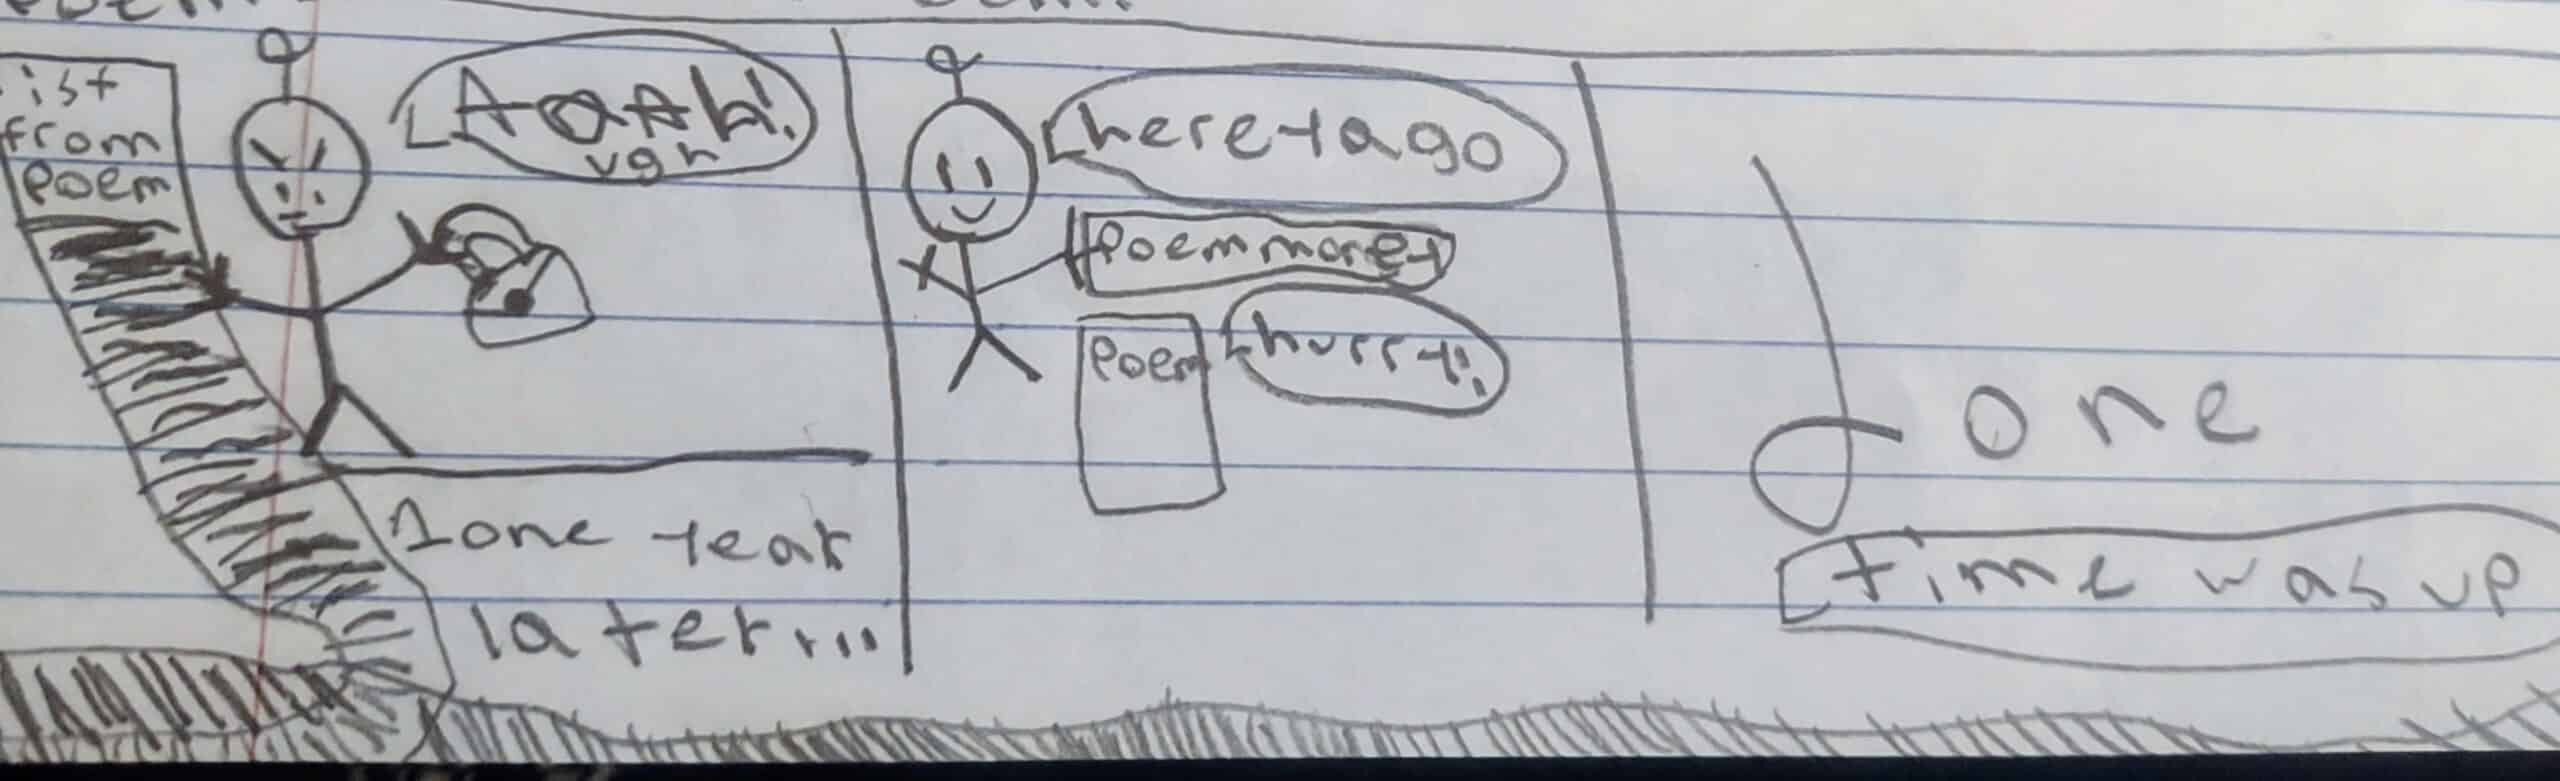 ist
from
poem
Aaah!
ugh
1one year
later...
here ya go
poem money
poem
hurry!
done
time was up